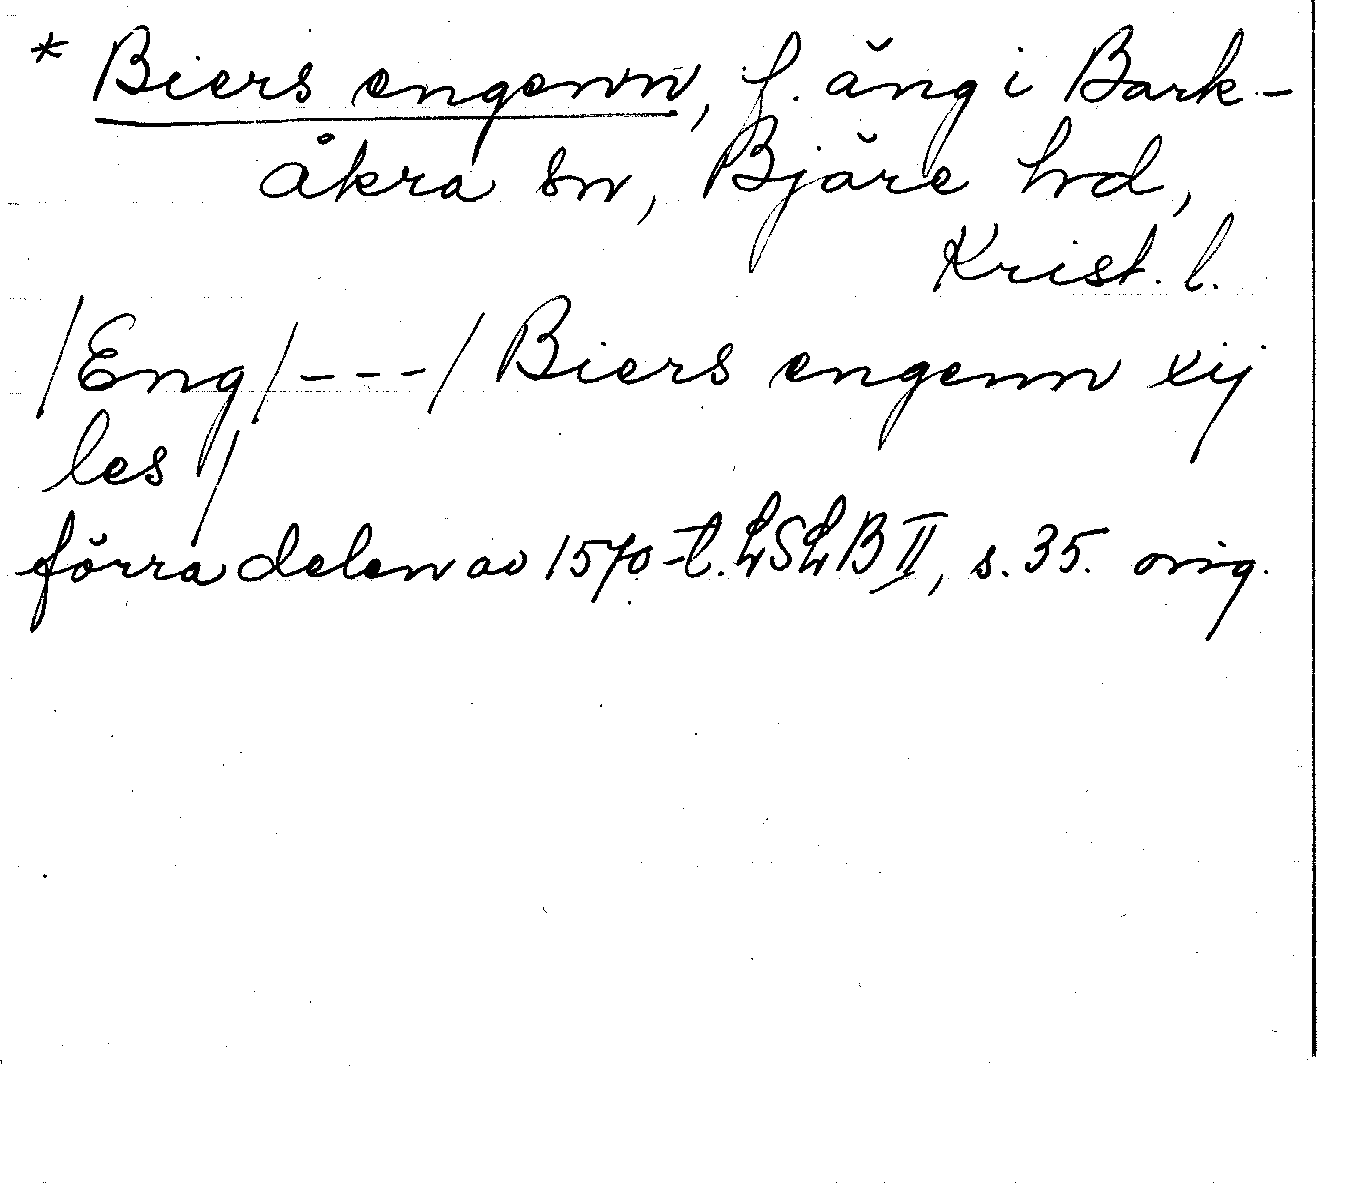 * Biers engenn, f. äng i Bark-
åkra sn, Bjäre hd,
Krist. l.
/Eng/---/ Biers engenn xij
les /
förra delen av 1570-t. LSLB II, s. 35. orig.